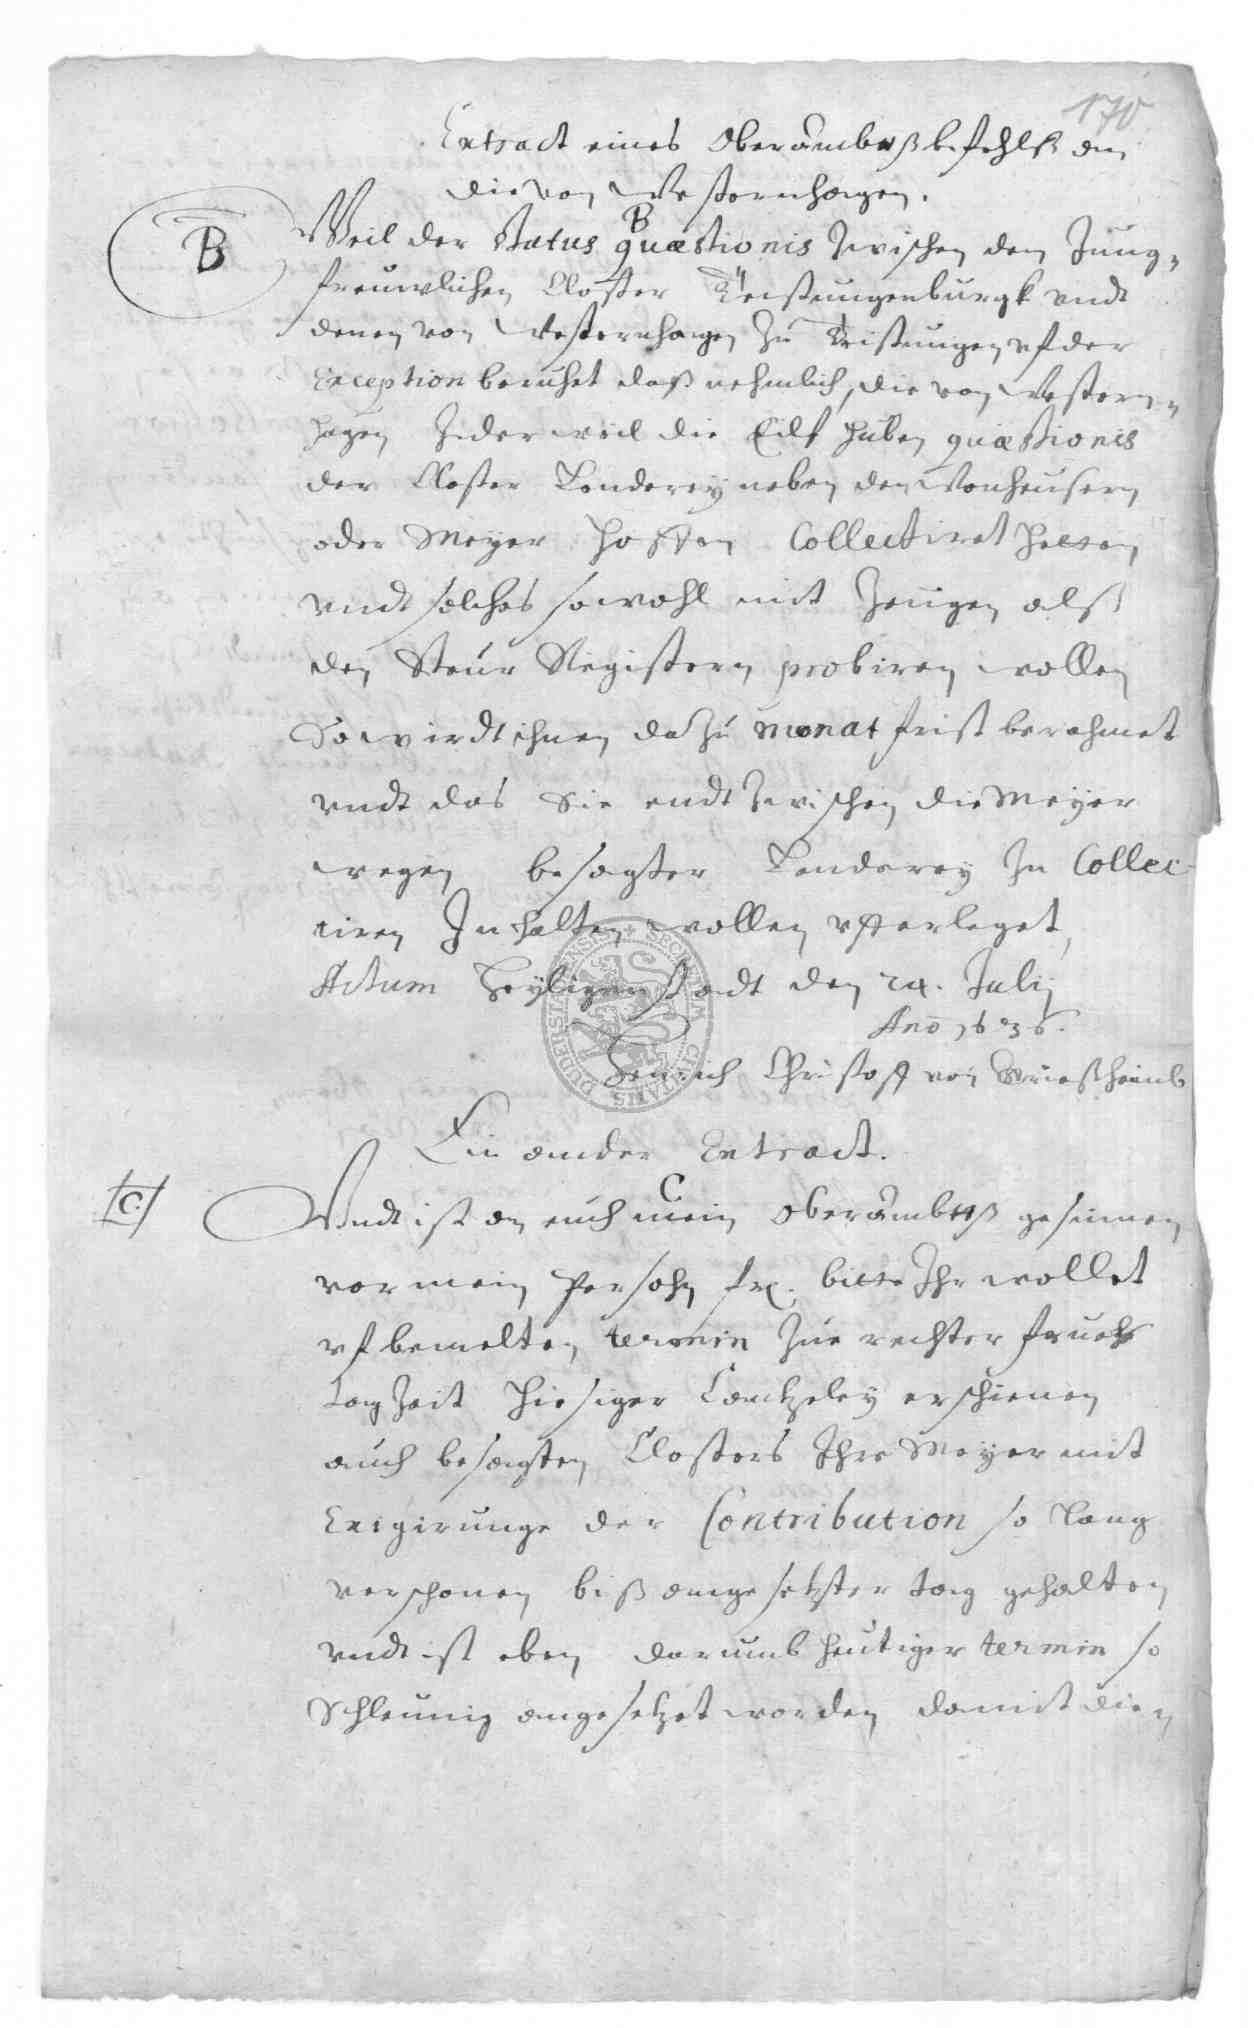 170
Extract eines Oberambtßbefehlß an
die von Westernhagen.
B
B
Weil der Status quæstionis zwischen dem Jung-
freuwlichen Closter Teistungenburgk vndt
denen von Westernhagen zu Teistungen vf der
Exception beruhet daß nehmlich, die von Western-
hagen Jeder weil die Eilf huben quæstionis
der Closter Länderey neben den Vorheusern
oder Meyer Hoffen Collectiret hetten
vndt solches sowohl mit Zeugen alß
den Steur Registern probiren wollen
So wirdt ihnen dazu monat frist berahmet
vndt das Sie endtzwischen die Meyer
wegen besagter Länderey zu Collec-
tiren Inhalten wollen vfferleget,
Actum Heyligenstadt den 24. Julij
Ano 1636.
Henrich Christoff von Grießheimb
SECRETUM CIVITATIS DUDERSTADENSIS
Ein ander Extract.
C.
C
Vndt ist an euch mein Oberambtß gesinnen
vor mein Persohn fr. bitte Ihr wollet
vf bemelten termin zue rechter frueh
tag Zeit hiesiger Cantzeley erschienen
auch besagten Closters Ihre Meyer mit
Exigirunge der Contribution so lang
verschonen biß angesetzter tag gehalten
vndt ist eben darumb heutiger termin so
Schleunig angesetzet worden damit die